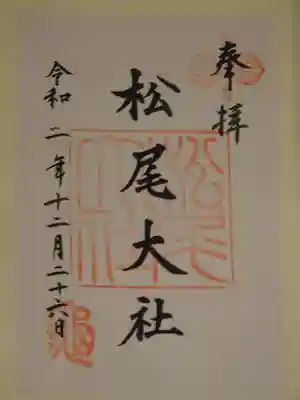 奉拝
松尾大社
令和二年十二月二十六日